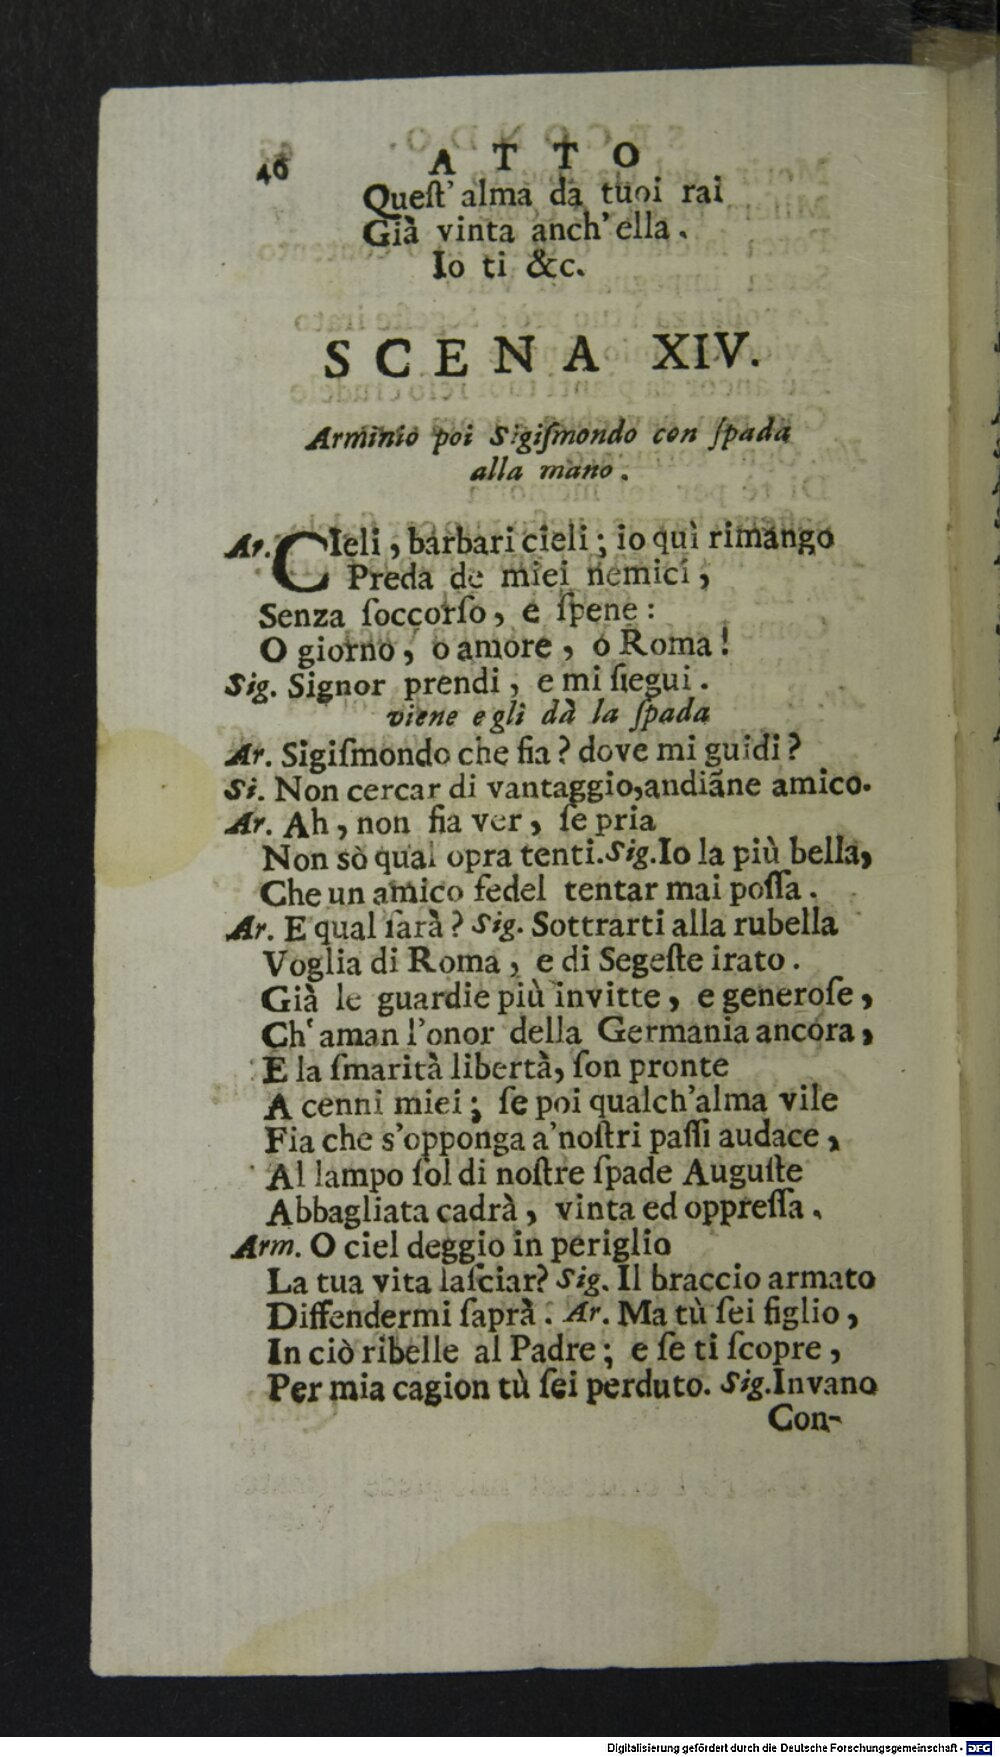 46 ATTO
Queſt' alma da tuoi rai
Già vinta anch' ella.
Io ti &c.
SCENA XIV.
Arminio poi Sigiſmondo con ſpada
alla mano.
Ar. CIeli, barbari cieli; io quì rimango
Preda de miei nemici,
Senza ſoccorſo, e ſpene:
O giorno, o amore, o Roma!
Sig. Signor prendi, e mi ſiegui.
viene e gli dà la ſpada
Ar. Sigiſmondo che fia? dove mi guidi?
Si. Non cercar di vantaggio, andiãne amico.
Ar. Ah, non fia ver, ſe pria
Non sò qual opra tenti. Sig. Io la più bella,
Che un amico fedel tentar mai poſſa.
Ar. E qual ſarà? Sig. Sottrarti alla rubella
Voglia di Roma, e di Segeſte irato.
Già le guardie più invitte, e generoſe,
Ch' aman l'onor della Germania ancora,
E la ſmarità libertà, ſon pronte
A cenni miei; ſe poi qualch'alma vile
Fia che s'opponga a'noſtri paſſi audace,
Al lampo ſol di noſtre ſpade Auguſte
Abbagliata cadrà, vinta ed oppreſſa.
Arm. O ciel deggio in periglio
La tua vita laſciar? Sig. Il braccio armato
Diffendermi ſaprà. Ar. Ma tù ſei figlio,
In ciò ribelle al Padre; e ſe ti ſcopre,
Per mia cagion tù ſei perduto. Sig. Invano
Con-
Digitalisierung gefördert durch die Deutsche Forschungsgemeinschaft - DFG